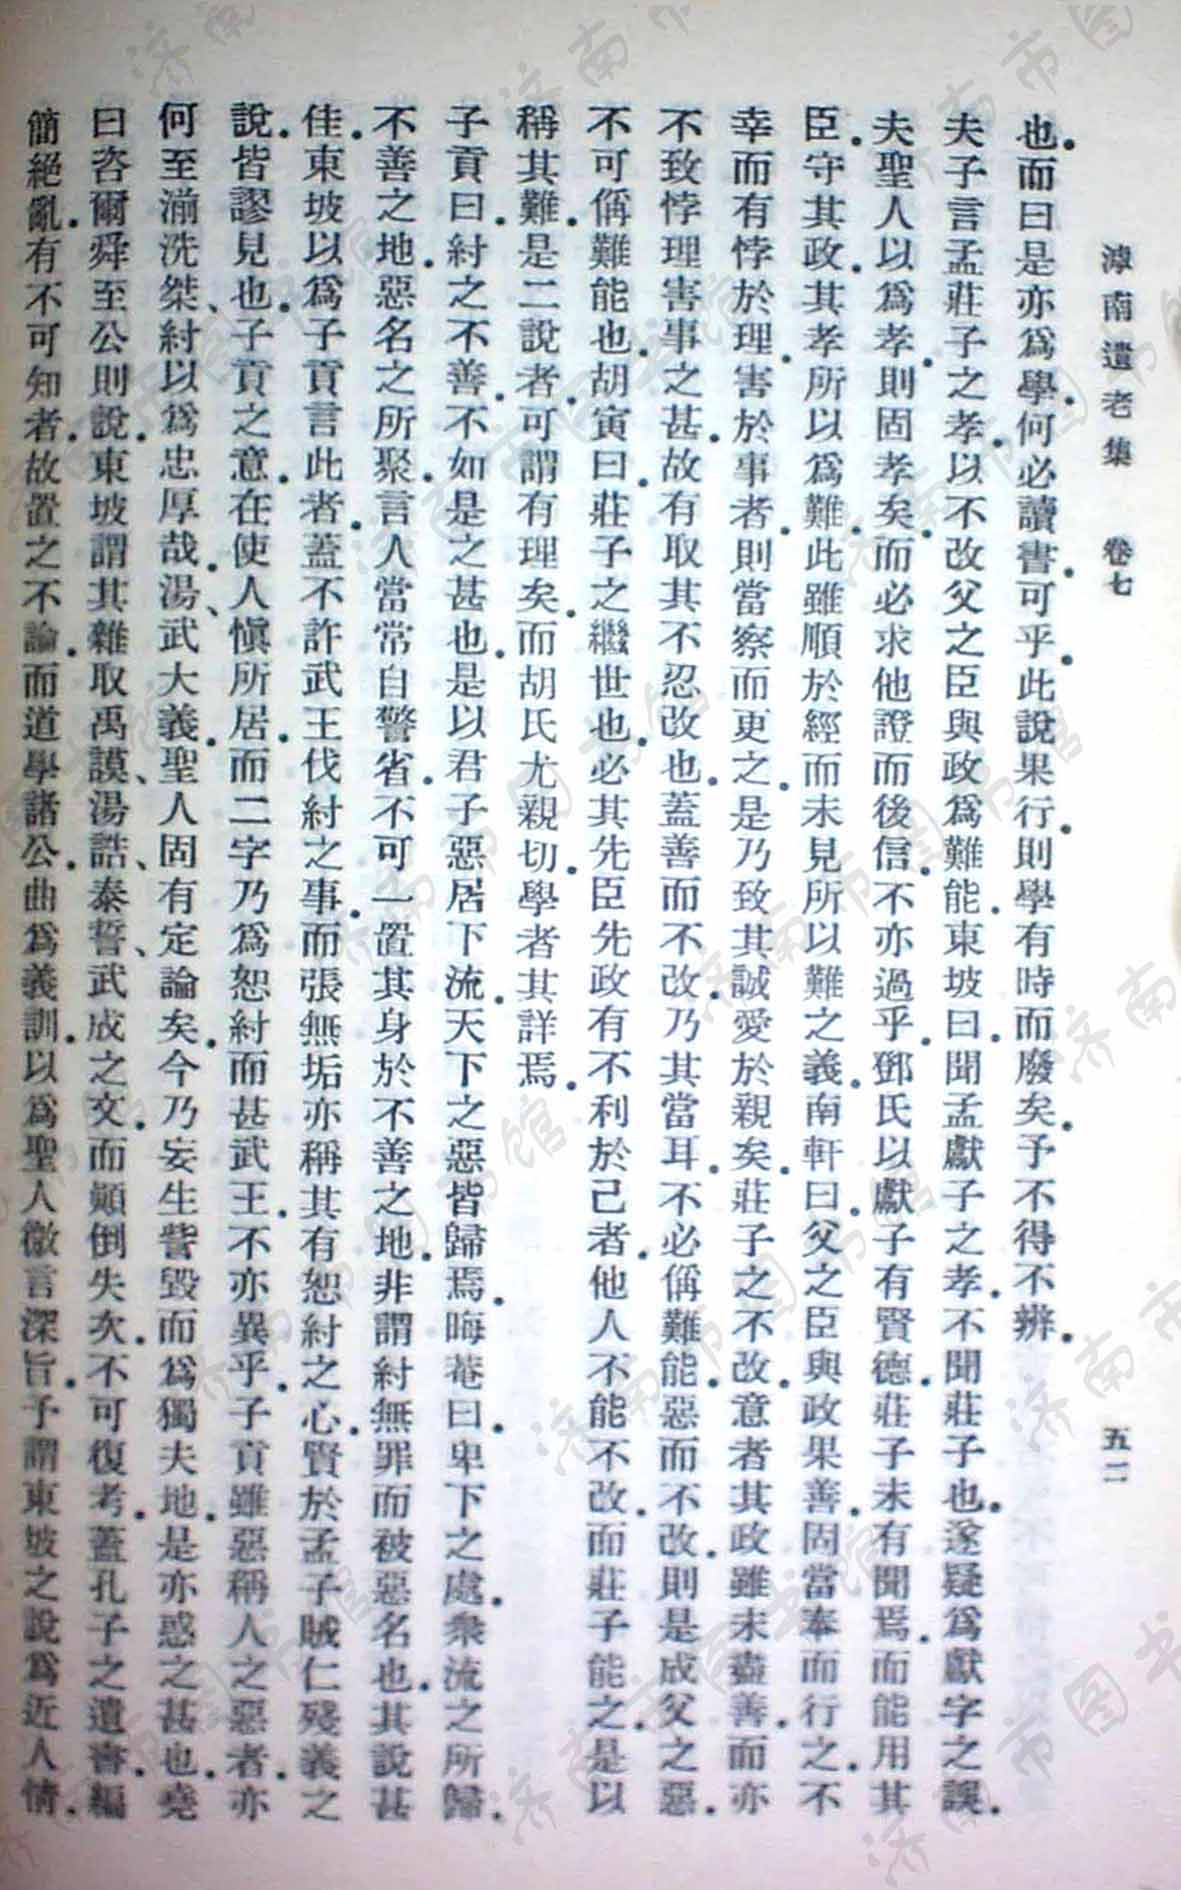 滹南遺老集　卷七　五二
也。而曰是亦爲學。何必讀書。可乎。此說果行。則學有時而廢矣。予不得不辨。
夫子言孟莊子之孝。以不改父之臣與政爲難能。東坡曰。聞孟獻子之孝。不聞莊子也。遂疑爲獻字之誤。
夫聖人以爲孝。則固孝矣。而必求他證而後信。不亦過乎。鄧氏以獻子有賢德。莊子未有聞焉。而能用其
臣。守其政。其孝所以爲難。此雖順於經。而未見所以難之義。南軒曰。父之臣與政果善。固當奉而行之。不
幸而有悖於理。害於事者。則當察而更之。是乃致其誠愛於親矣。莊子之不改。意者其政雖未盡善。而亦
不致悖理害事之甚。故有取其不忍改也。蓋善而不改。乃其當耳。不必偁難能。惡而不改。則是成父之惡。
不可偁難能也。胡寅曰。莊子之繼世也。必其先臣先政有不利於己者。他人不能不改。而莊子能之。是以
稱其難。是二說者。可謂有理矣。而胡氏尤親切。學者其詳焉。
子貢曰。紂之不善。不如是之甚也。是以君子惡居下流。天下之惡皆歸焉。晦菴曰。卑下之處。衆流之所歸。
不善之地。惡名之所聚。言人當常自警省。不可一置其身於不善之地。非謂紂無罪而被惡名也。其說甚
佳。東坡以爲子貢言此者。蓋不許武王伐紂之事。而張無垢亦稱其有恕紂之心。賢於孟子賊仁殘義之
說。皆謬見也。子貢之意。在使人愼所居。而二字乃爲恕紂而甚武王。不亦異乎。子貢雖惡稱人之惡者。亦
何至湔洗桀、紂以爲忠厚哉。湯、武大義。聖人固有定論矣。今乃妄生訾毀。而爲獨夫地。是亦惑之甚也。堯
曰咨爾舜至公則說。東坡謂其雜取禹謨、湯誥、泰誓、武成之文。而顚倒失次。不可復考。蓋孔子之遺書。編
簡絕亂。有不可知者。故置之不論。而道學諸公。曲爲義訓。以爲聖人微言深旨。予謂東坡之說爲近人情。